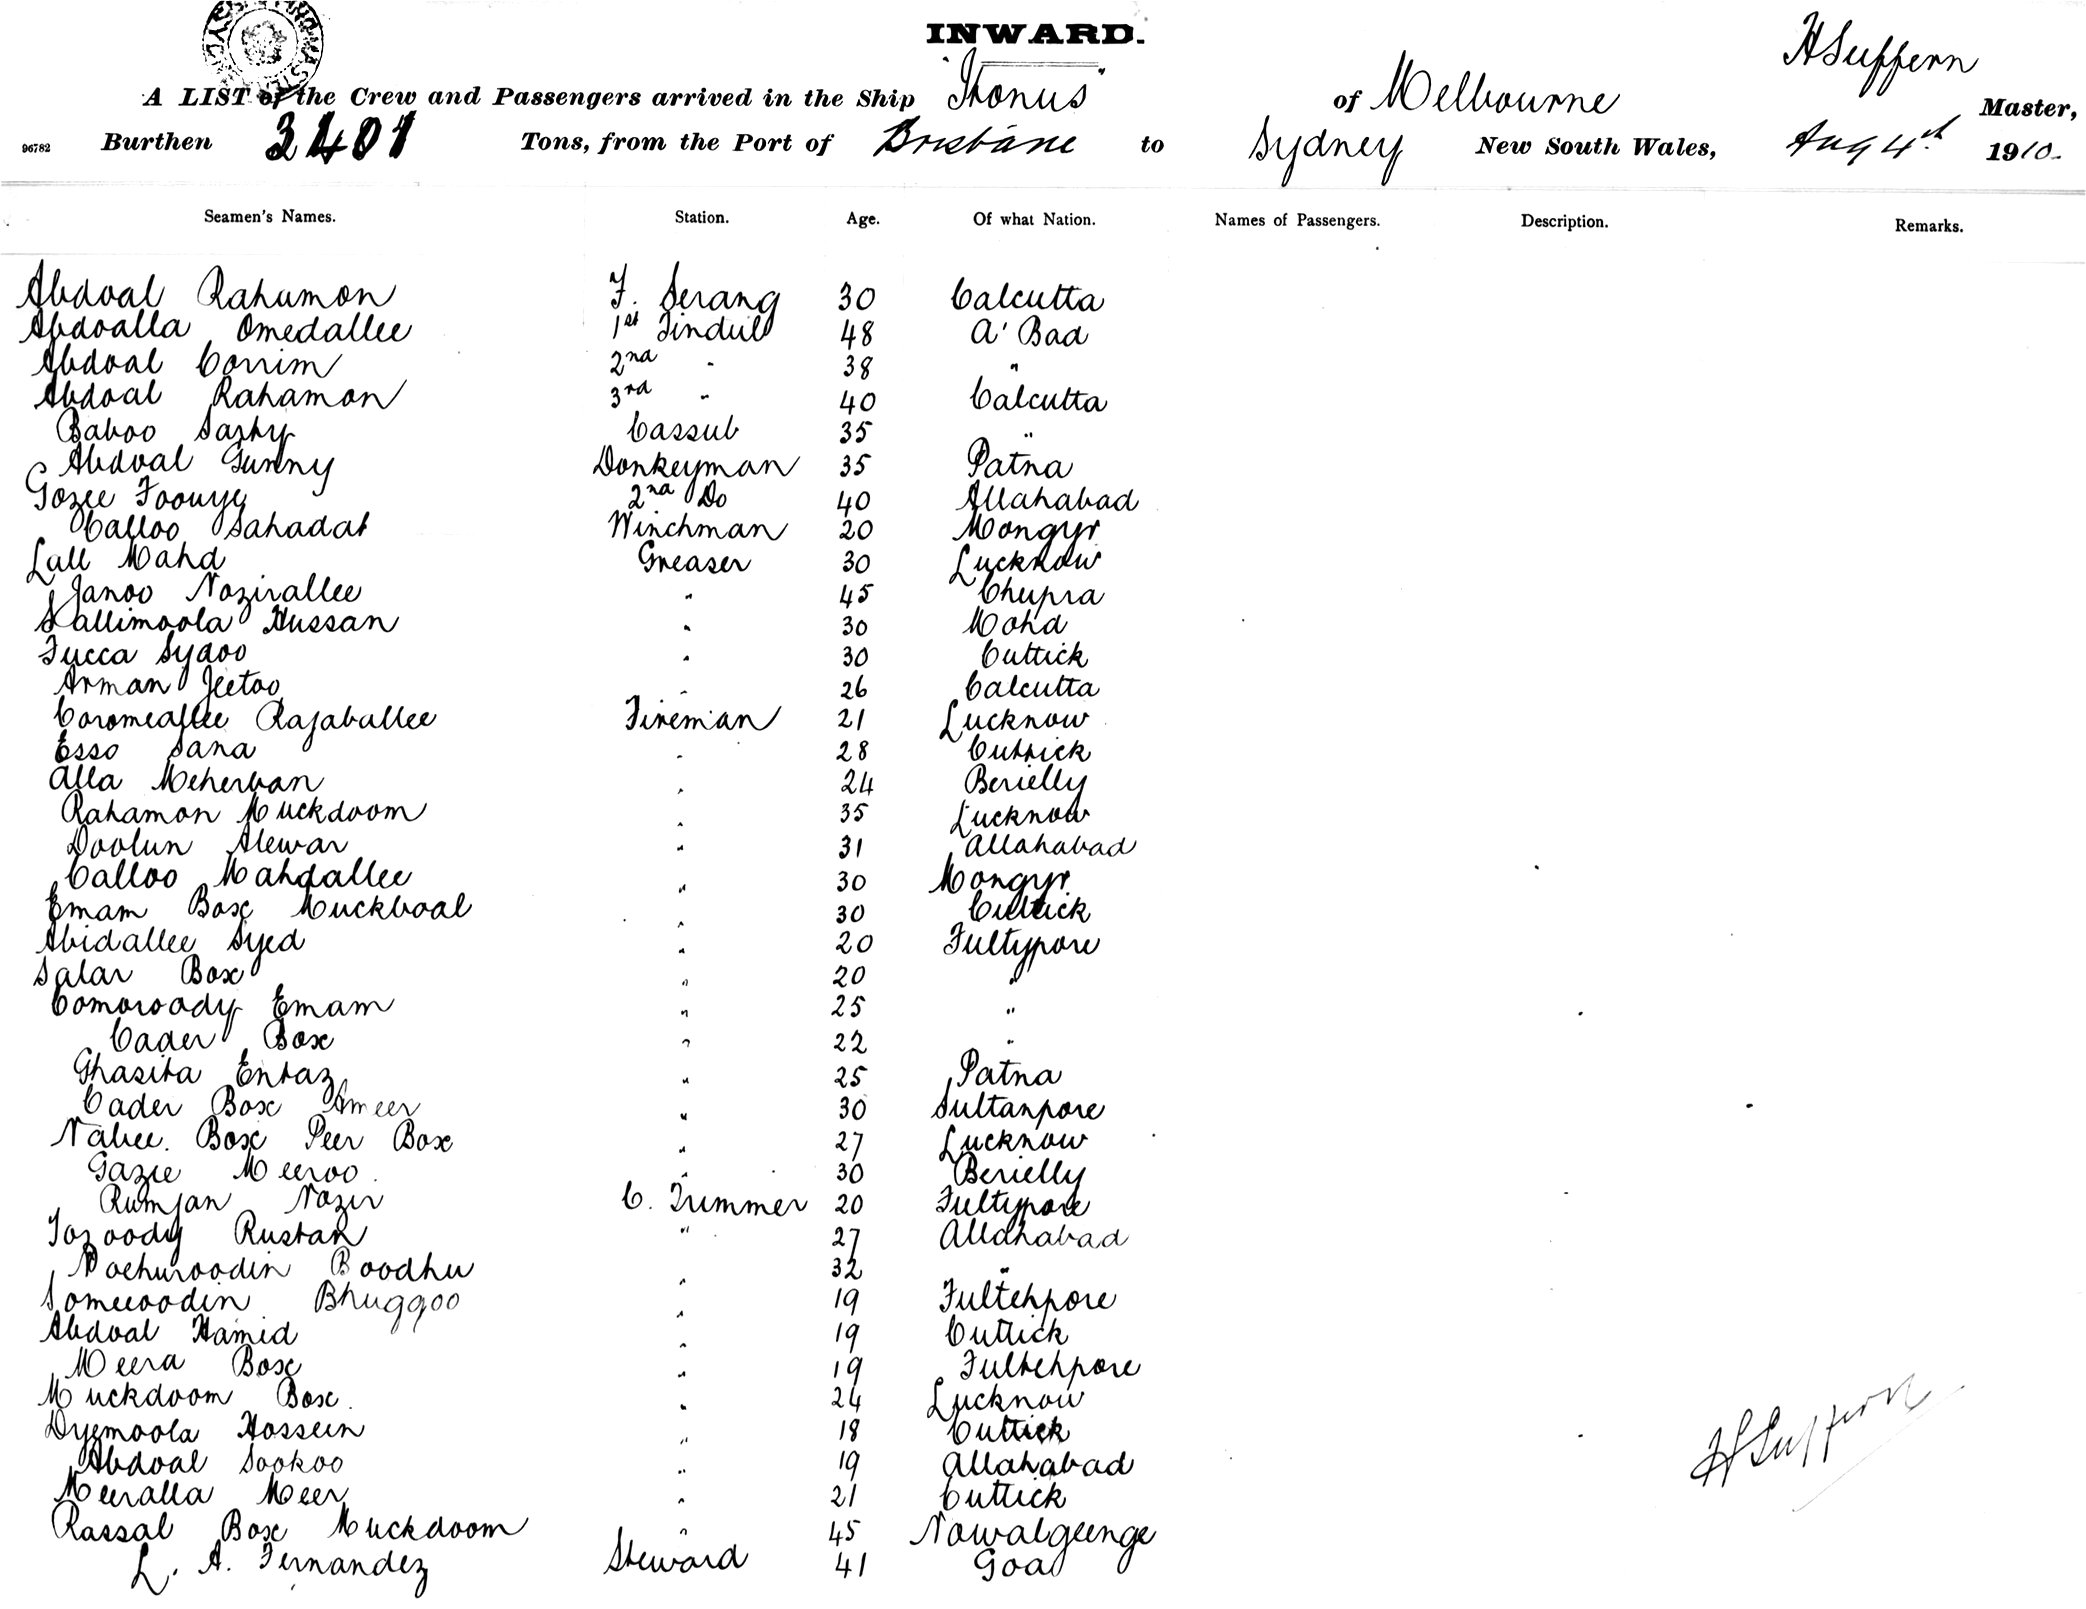 INWARD.
H Suffern
A LIST of the Crew and Passengers arrived in the Ship "Itonus" of Melbourne Master,
96782 Burthen 3401 Tons, from the Port of Brisbane to Sydney New South Wales, Aug 4th 1910.
Seamen's Names. Station. Age. Of what Nation. Names of Passengers. Description. Remarks.
Abdoal Rahamon F. Serang 30 Calcutta
Abdoalla Omedallee 1st Tindul 48 A' Bad
Abdoal Corrim 2nd " 38 "
Abdoal Rahamon 3rd " 40 Calcutta
Baboo Cassub 35 "
Abdoal Gunny Donkeyman 35 Patna
Gozee 2nd Do 40 Allahabad
Calloo Sahadat Winchman 20 Mongyr
Lall Mahd Greaser 30 Lucknow
Janoo Nozirallee " 45 Chupra
Sallimoola Hussan " 30 Mohd
Fucca Sydoo " 30 Cuttick
Arman Jeetoo " 26 Calcutta
Coromeallee Rajaballee Fireman 21 Lucknow
Esso Sana " 28 Cuttick
Alla Meherban " 24 Berielly
Rahamon Muckdoom " 35 Lucknow
Doolun Alewar " 31 Allahabad
Calloo Mahdallee " 30 Mongyr
Emam Box Muckboal " 30 Cuttick
Abidallee Syed " 20 Fultypore
Salar Box " 20 "
Comoroody Emam " 25 "
Cader Box " 22 "
Ghasita Entaz " 25 Patna
Cader Box Ameer " 30 Sultanpore
Nabee Box Peer Box " 27 Lucknow
Gazie Meeroo " 30 Berielly
Rumjan Nozir C. Trimmer 20 Fultypore
Tozoody Rustan " 27 Allahabad
Boodhu " 32 "
Someeoodin Bhuggoo " 19 Fultehpore
Abdoal Hamid " 19 Cuttick
Meera Box " 19 Fultehpore
Muckdoom Box " 24 Lucknow
Dyemoola Hossein " 18 Cuttick
Abdoal Sookoo " 19 Allahabad
Meeralla Meer " 21 Cuttick
Rassal Box Muckdoom " 45 Nowalgeenge
L. A. Fernandez Steward 41 Goa
H Suffern